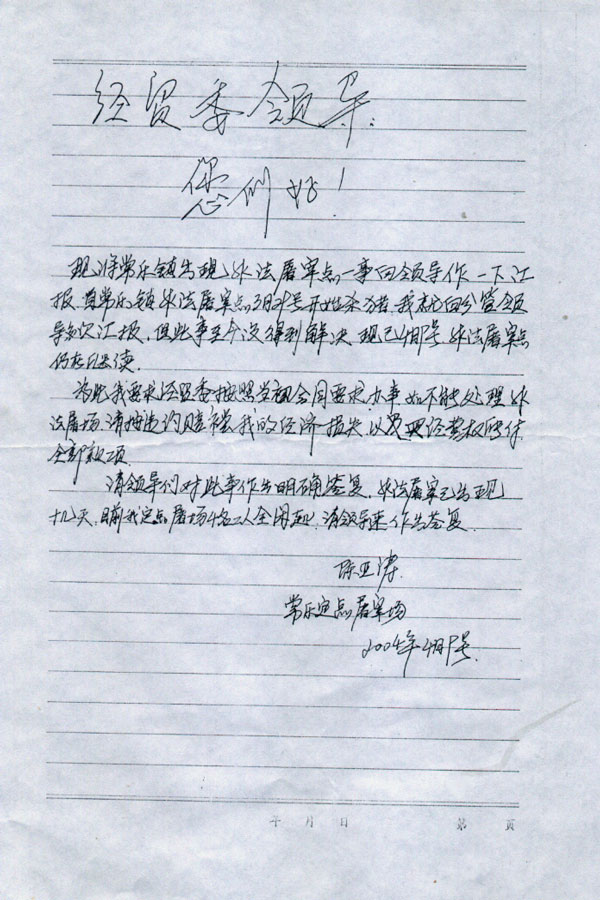 经贸委领导:
您们好!
现将常乐镇出现非法屠宰点一事向领导作一下汇
报.自常乐镇非法屠宰点3月29号开始杀猪.我就向分管领
导多次汇报.但此事至今没得到解决.现已4月8号.非法屠宰点
仍在继续.
为此我要求经贸委按照当初合同要求办事.如不能处理非
法屠场.请按违约赔偿我的经济损失.以及买经营权时付
全部款项.
请领导们对此事作出明确答复.非法屠宰已出现
十几天.目前我定点屠场4名工人全闲在此.请领导速作出答复.
陈亚涛.
常乐定点屠宰场
2004年4月8号.
年 月 日 第 页